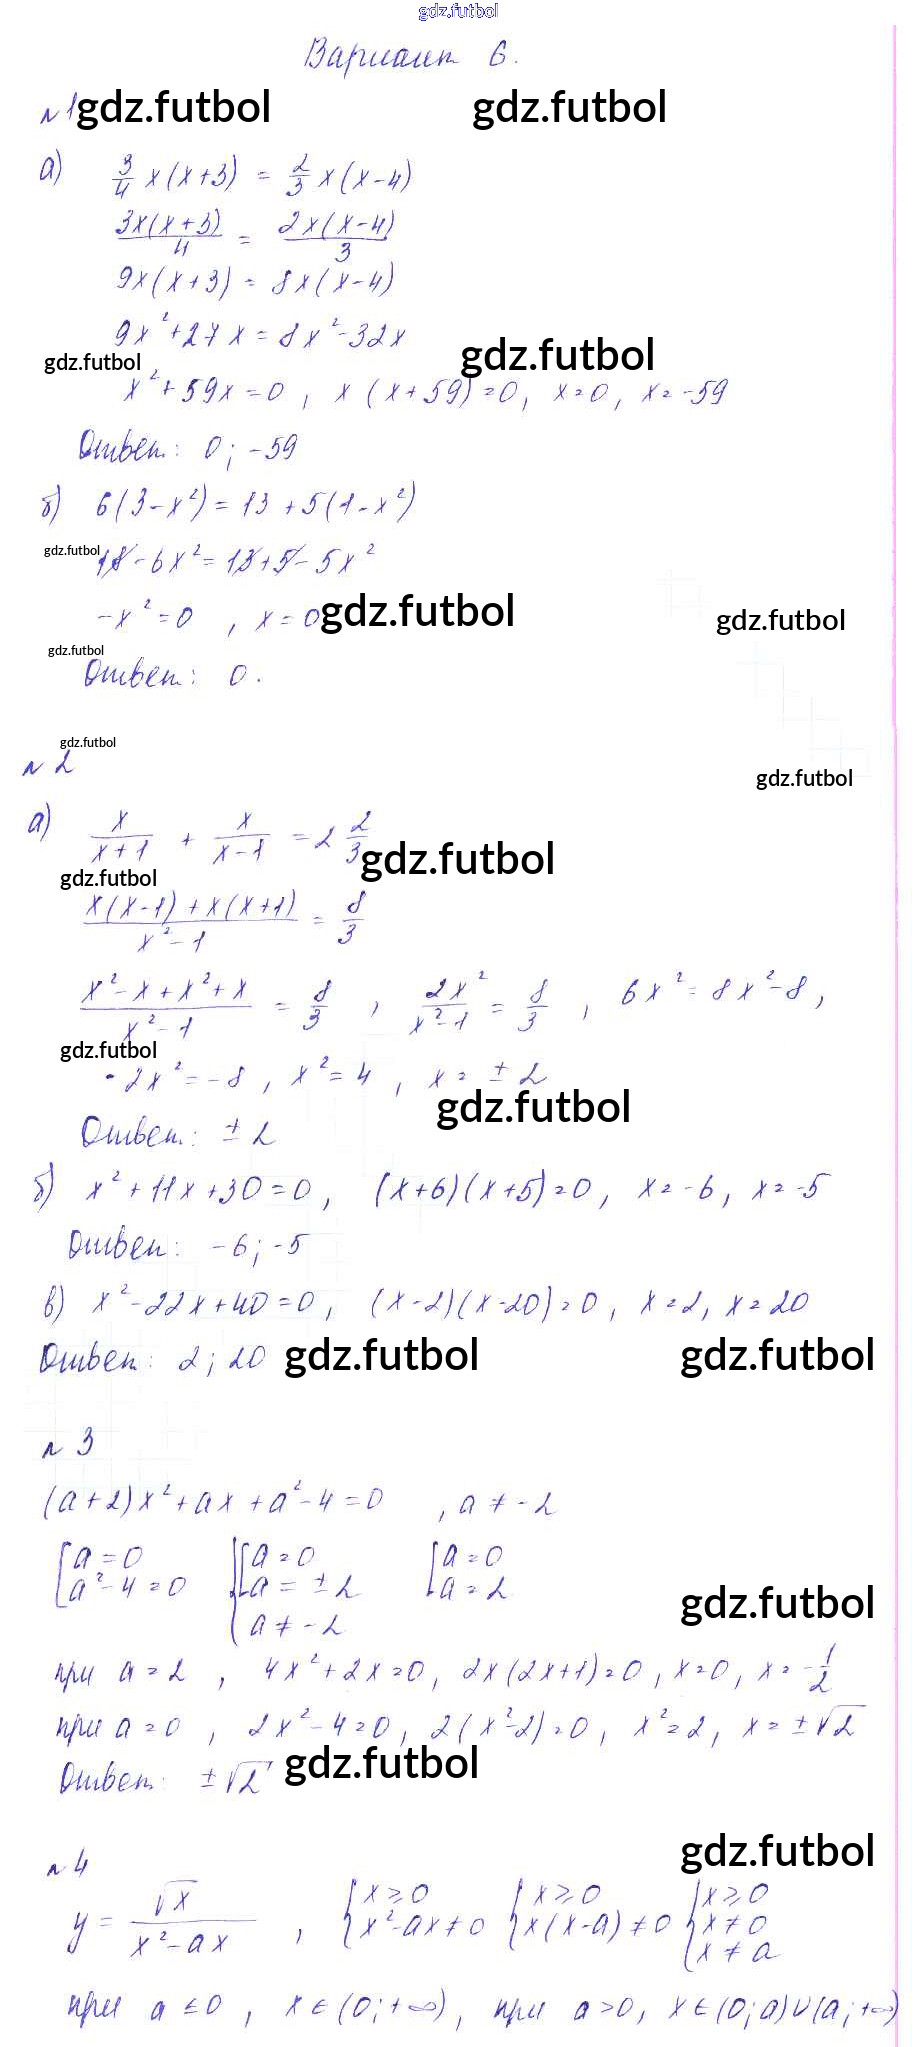 gdz.futbol
Вариант 6.
№1 gdz.futbol gdz.futbol
а) 3/4 x(x+3) = 2/3 x(x-4)
3x(x+3)/4 = 2x(x-4)/3
9x(x+3) = 8x(x-4)
9x²+27x = 8x²-32x
gdz.futbol gdz.futbol
x²+59x=0, x(x+59)=0, x=0, x=-59
Ответ: 0; -59
б) 6(3-x²) = 13+5(1-x²)
gdz.futbol
18-6x²=13+5-5x²
-x²=0, x=0 gdz.futbol gdz.futbol
gdz.futbol
Ответ: 0.
gdz.futbol
№2
gdz.futbol
а) x/(x+1) + x/(x-1) = 2 2/3 gdz.futbol
gdz.futbol
(x(x-1)+x(x+1))/(x²-1) = 8/3
(x²-x+x²+x)/(x²-1) = 8/3, 2x²/(x²-1) = 8/3, 6x²=8x²-8,
gdz.futbol
-2x²=-8, x²=4, x=±2
gdz.futbol
Ответ: ±2
б) x²+11x+30=0, (x+6)(x+5)=0, x=-6, x=-5
Ответ: -6; -5
в) x²-22x+40=0, (x-2)(x-20)=0, x=2, x=20
Ответ: 2; 20 gdz.futbol gdz.futbol
№3
(a+2)x²+ax+a²-4=0, a≠-2
[a=0 {[a=0 [a=0
[a²-4=0 {[a=±2 [a=2
{a≠-2 gdz.futbol
при a=2, 4x²+2x=0, 2x(2x+1)=0, x=0, x=-1/2
при a=0, 2x²-4=0, 2(x²-2)=0, x²=2, x=±√2
Ответ: ±√2 gdz.futbol
№4 gdz.futbol
y = √x/(x²-ax), {x≥0 {x≥0 {x≥0
{x²-ax≠0 {x(x-a)≠0 {x≠0
{x≠a
при a≤0, x∈(0;+∞), при a>0, x∈(0;a)∪(a;+∞)